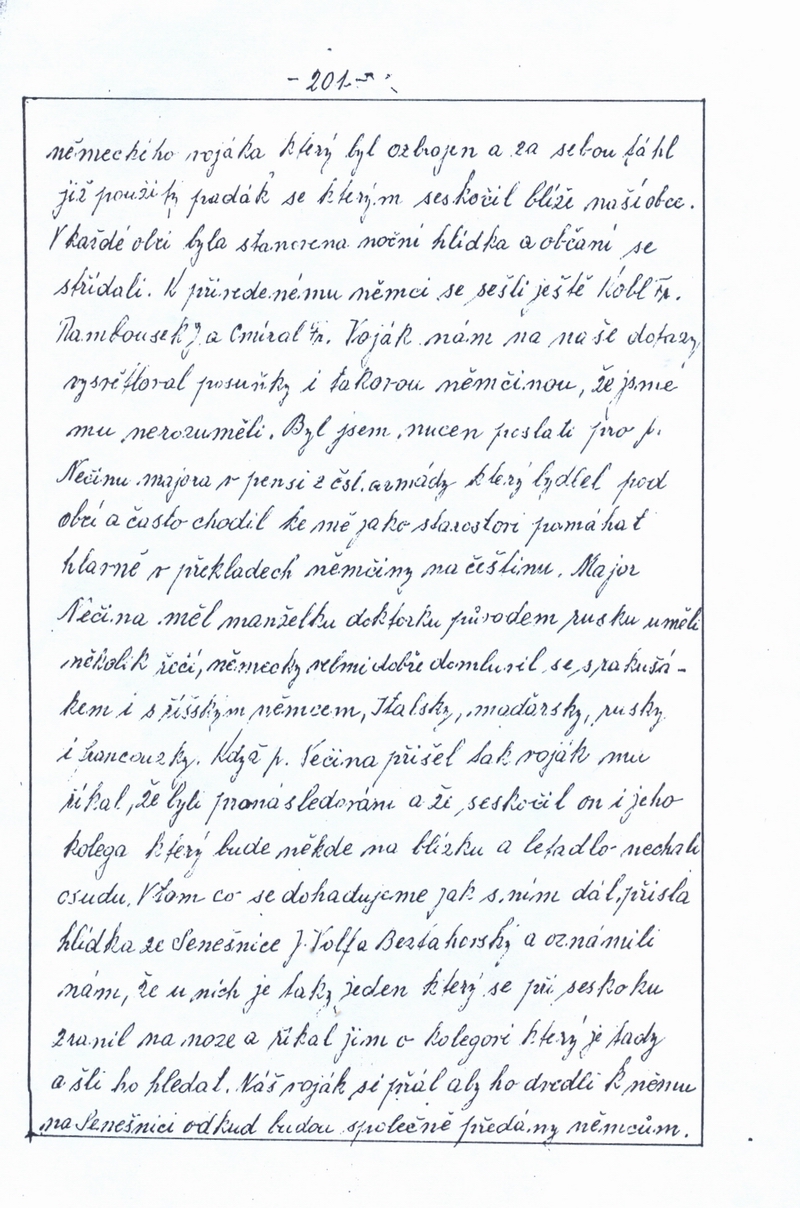 - 201 -
německého vojáka který byl ozbrojen a za sebou táhl
již použitý padák se kterým seskočil blíže naší obce.
V každé obci byla stanovena noční hlídka a občaní se
střídali. K přivedenému němci se sešli ještě Kobl Fr.
Rambousek J. a Cmíral Fr. Voják nám na naše dotazy
vysvětloval posuňky i takovou němčinou, že jsme
mu nerozuměli. Byl jsem nucen poslati pro p.
Nečinu majora v pensi z čsl. armády který bydlel pod
obcí a často chodil ke mě jako starostovi pomáhat
hlavně v překladech němčiny na češtinu. Major
Nečina měl manželku doktorku původem rusku uměli
několik řečí, německy velmi dobře domluvil se s rakušá-
kem i s říšským němcem, Italsky, maďarsky, rusky
i francouzky. Když p. Nečina přišel tak voják mu
říkal, že byli pronásledováni a že seskočil on i jeho
kolega který bude někde na blízku a letadlo nechali
osudu. V tom co se dohadujeme jak s ním dál přišla
hlídka ze Senešnice J. Volfa Beztahovský a oznámili
nám, že u nich je taky jeden který se při seskoku
zranil na noze a říkal jim o kolegovi který je tady
a šli ho hledat. Náš voják si přál aby ho dvedli k němu
na Senešnici odkud budou společně předány němcům.